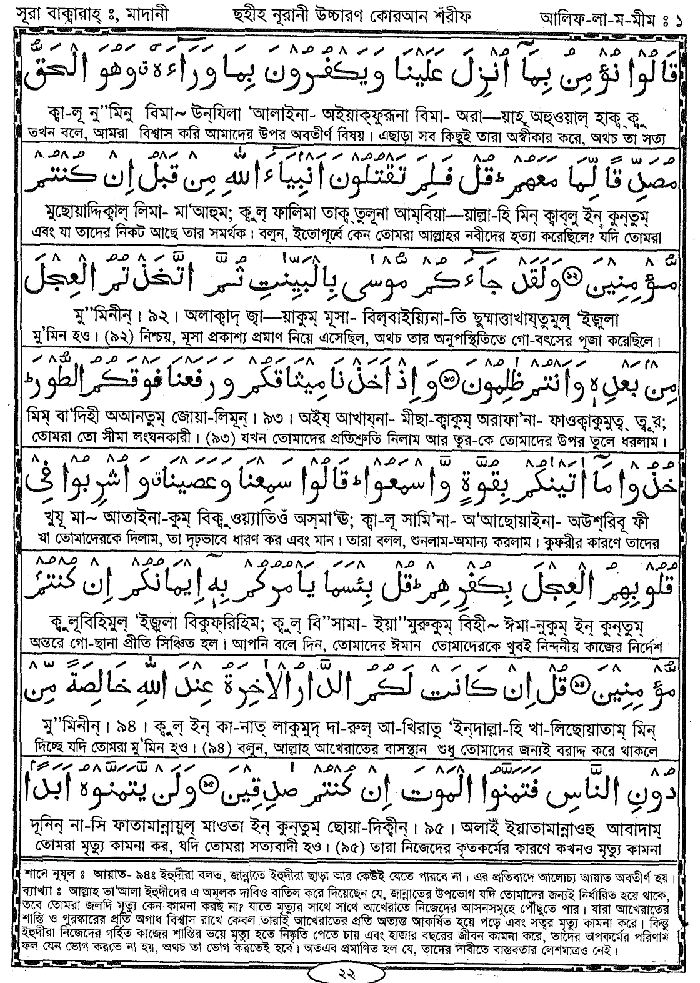 সূরা বাক্বারাহ্ ঃ, মাদানী ছহীহ নূরানী উচ্চারণ কোরআন শরীফ আলিফ-লা-ম-মীম ঃ ১
قَالُوْا نُؤْمِنُ بِمَآ اُنْزِلَ عَلَيْنَا وَيَكْفُرُوْنَ بِمَا وَرَآءَهٗ وَهُوَ الْحَقُّ
ক্বা-লূ নু"মিনু বিমা~ উন্‌যিলা 'আলাইনা- অইয়াক্‌ফুরূনা বিমা- অরা—য়াহূ অহুওয়াল্ হাক্ব্‌ক্বু
তখন বলে, আমরা বিশ্বাস করি আমাদের উপর অবতীর্ণ বিষয়। এছাড়া সব কিছুই তারা অস্বীকার করে, অথচ তা সত্য
مُصَدِّقًا لِّمَا مَعَهُمْ ؕ قُلْ فَلِمَ تَقْتُلُوْنَ اَنْۢبِيَآءَ اللّٰهِ مِنْ قَبْلُ اِنْ كُنْتُمْ
মুছোয়াদ্দিক্বাল্ লিমা- মা'আহুম; ক্বুল্ ফালিমা তাক্ব্‌তুলূনা আম্‌বিয়া—য়াল্লা-হি মিন্ ক্বাব্‌লু ইন্ কুন্‌তুম্
এবং যা তাদের নিকট আছে তার সমর্থক। বলুন, ইতোপূর্বে কেন তোমরা আল্লাহর নবীদের হত্যা করেছিলে? যদি তোমরা
مُّؤْمِنِيْنَ ﴿৯১﴾ وَلَقَدْ جَآءَكُمْ مُّوْسٰى بِالْبَيِّنٰتِ ثُمَّ اتَّخَذْتُمُ الْعِجْلَ
মু"মিনীন্। ৯২। অলাক্বাদ্ জ্বা—য়াকুম্ মূসা- বিল্‌বাইয়্যিনা-তি ছুম্মাত্তাখায্‌তুমুল্ 'ইজ্ব্‌লা
মু'মিন হও। (৯২) নিশ্চয়, মূসা প্রকাশ্য প্রমাণ নিয়ে এসেছিল, অথচ তার অনুপস্থিতিতে গো-বৎসের পূজা করেছিলে।
مِنْۢ بَعْدِهٖ وَاَنْتُمْ ظٰلِمُوْنَ ﴿৯২﴾ وَاِذْ اَخَذْنَا مِيْثَاقَكُمْ وَرَفَعْنَا فَوْقَكُمُ الطُّوْرَ ؕ
মিম্ বা'দিহী অআন্‌তুম্ জোয়া-লিমূন্। ৯৩। অইয্ আখায্‌না- মীছা-ক্বাকুম্ অরাফা'না- ফাওক্বাকুমুত্ব্ ত্বূর;
তোমরা তো সীমা লংঘনকারী। (৯৩) যখন তোমাদের প্রতিশ্রুতি নিলাম আর তূর-কে তোমাদের উপর তুলে ধরলাম।
خُذُوْا مَآ اٰتَيْنٰكُمْ بِقُوَّةٍ وَّاسْمَعُوْا ؕ قَالُوْا سَمِعْنَا وَعَصَيْنَا وَاُشْرِبُوْا فِيْ
খুযূ মা~ আতাইনা-কুম্ বিক্বুওয়্যাতিওঁ অস্‌মা'উ; ক্বা-লূ সামি'না- অ'আছোয়াইনা- অউশ্‌রিবূ ফী
যা তোমাদেরকে দিলাম, তা দৃঢ়ভাবে ধারণ কর এবং মান। তারা বলল, শুনলাম-অমান্য করলাম। কুফরীর কারণে তাদের
قُلُوْبِهِمُ الْعِجْلَ بِكُفْرِهِمْ ؕ قُلْ بِئْسَمَا يَاْمُرُكُمْ بِهٖٓ اِيْمَانُكُمْ اِنْ كُنْتُمْ
ক্বুলূবিহিমুল্ 'ইজ্ব্‌লা বিকুফ্‌রিহিম; ক্বুল্ বি"সামা- ইয়া"মুরুকুম্ বিহী~ ঈমা-নুকুম্ ইন্ কুন্‌তুম্
অন্তরে গো-ছানা প্রীতি সিঞ্চিত হল। আপনি বলে দিন, তোমাদের ঈমান তোমাদেরকে খুবই নিন্দনীয় কাজের নির্দেশ
مُّؤْمِنِيْنَ ﴿৯৩﴾ قُلْ اِنْ كَانَتْ لَكُمُ الدَّارُ الْاٰخِرَةُ عِنْدَ اللّٰهِ خَالِصَةً مِّنْ
মু"মিনীন্। ৯৪। ক্বুল্ ইন্ কা-নাত্ লাকুমুদ্ দা-রুল্ আ-খিরাতু 'ইন্দাল্লা-হি খা-লিছোয়াতাম্ মিন্
দিচ্ছে যদি তোমরা মু'মিন হও। (৯৪) বলুন, আল্লাহ আখেরাতের বাসস্থান শুধু তোমাদের জন্যই বরাদ্দ করে থাকলে
دُوْنِ النَّاسِ فَتَمَنَّوُا الْمَوْتَ اِنْ كُنْتُمْ صٰدِقِيْنَ ﴿৯৪﴾ وَلَنْ يَّتَمَنَّوْهُ اَبَدًۢا
দূনিন্ না-সি ফাতামান্নায়ুল্ মাওতা ইন্ কুন্‌তুম্ ছোয়া-দিক্বীন্। ৯৫। অলাই ইয়াতামান্নাওহু আবাদাম্
তোমরা মৃত্যু কামনা কর, যদি তোমরা সত্যবাদী হও। (৯৫) তারা নিজেদের কৃতকর্মের কারণে কখনও মৃত্যু কামনা
শানে নুযূল ঃ আয়াত- ৯৪ঃ ইহুদীরা বলত, জান্নাতে ইহুদীরা ছাড়া আর কেউই যেতে পারবে না। এর প্রতিবাদে আলোচ্য আয়াত অবতীর্ণ হয়।
ব্যাখ্যা ঃ আল্লাহ তা'আলা ইহুদীদের এ অমূলক দাবিও বাতিল করে দিয়েছেন যে, জান্নাতের উপভোগ যদি তোমাদের জন্যই নির্ধারিত হয়ে থাকে,
তবে তোমরা জলদি মৃত্যু কেন কামনা করছ না? যাতে মৃত্যুর সাথে সাথে আখেরাতে নিজেদের আসনসমূহে পৌঁছতে পার। যারা আখেরাতের
শান্তি ও পুরস্কারের প্রতি অগাধ বিশ্বাস রাখে কেবল তারাই আখেরাতের প্রতি অত্যন্ত আকর্ষিত হয়ে পড়ে এবং সত্বর মৃত্যু কামনা করে। কিন্তু
ইহুদীরা নিজেদের গর্হিত কাজের শাস্তির ভয়ে মৃত্যু হতে নিষ্কৃতি পেতে চায় এবং হাজার বছরের জীবন কামনা করে, তাদের অপকর্মের পরিণাম
ফল যেন ভোগ করতে না হয়, অথচ তা ভোগ করতেই হবে। অতএব প্রমাণিত হল যে, তাদের দাবীতে বাস্তবতার লেশমাত্রও নেই।
২২